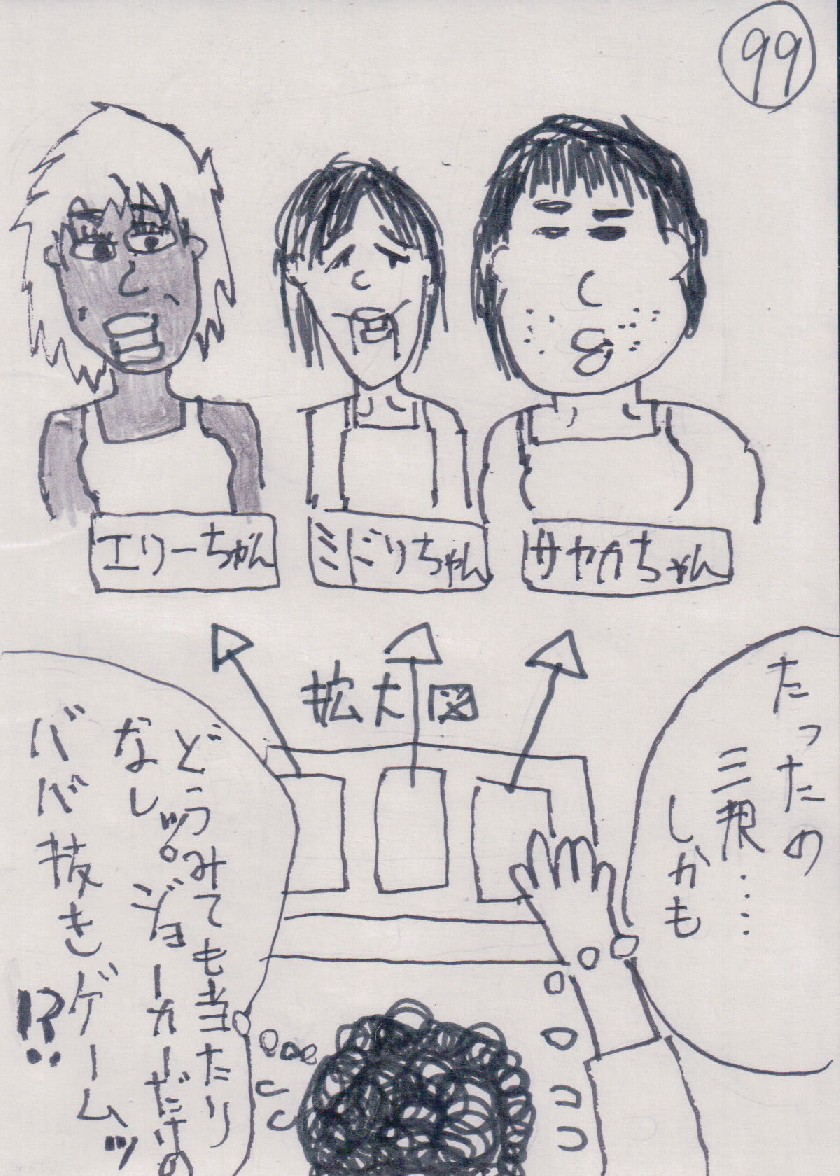 99
エリーちゃん
ミドリちゃん
サヤカちゃん
拡大図
たったの
三択・・・
しかも
どうみても当たり
なしッ。ジョーカーだけの
ババ抜きゲームッ
!?